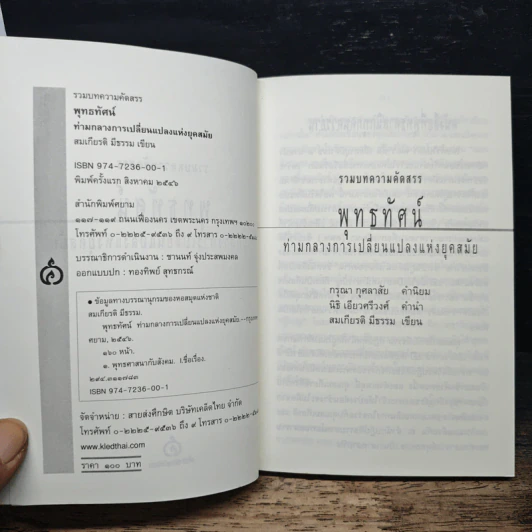 รวมบทความคัดสรร
พุทธทัศน์
ท่ามกลางการเปลี่ยนแปลงแห่งยุคสมัย
สมเกียรติ มีธรรม เขียน
ISBN 974-7236-00-1
พิมพ์ครั้งแรก สิงหาคม ๒๕๔๖
สำนักพิมพ์ศยาม
๑๑๗-๑๑๙ ถนนเฟื่องนคร เขตพระนคร กรุงเทพฯ ๑๐๒๐๐
โทรศัพท์ ๐-๒๒๒๕-๙๕๓๖ ถึง ๙ โทรสาร ๐-๒๒๒๒-๕๑๘๘
บรรณาธิการดำเนินงาน : ชานนท์ จุ่งประสพมงคล
ออกแบบปก : ทองทิพย์ สุทธกรณ์
• ข้อมูลทางบรรณานุกรมของหอสมุดแห่งชาติ
สมเกียรติ มีธรรม.
พุทธทัศน์ ท่ามกลางการเปลี่ยนแปลงแห่งยุคสมัย.--กรุงเทพฯ
ศยาม, ๒๕๔๖.
๑๖๐ หน้า.
๑. พุทธศาสนากับสังคม. I. ชื่อเรื่อง.
๒๙๔.๓๑๑๗๘๓
ISBN 974-7236-00-1
จัดจำหน่าย : สายส่งศึกษิต บริษัทเคล็ดไทย จำกัด
โทรศัพท์ ๐-๒๒๒๕-๙๕๓๖ ถึง ๙ โทรสาร ๐-๒๒๒๒-๕๑๘๘
www.kledthai.com
ราคา ๑๐๐ บาท
รวมบทความคัดสรร
พุทธทัศน์
ท่ามกลางการเปลี่ยนแปลงแห่งยุคสมัย
กรุณา กุศลาสัย คำนิยม
นิธิ เอียวศรีวงศ์ คำนำ
สมเกียรติ มีธรรม เขียน